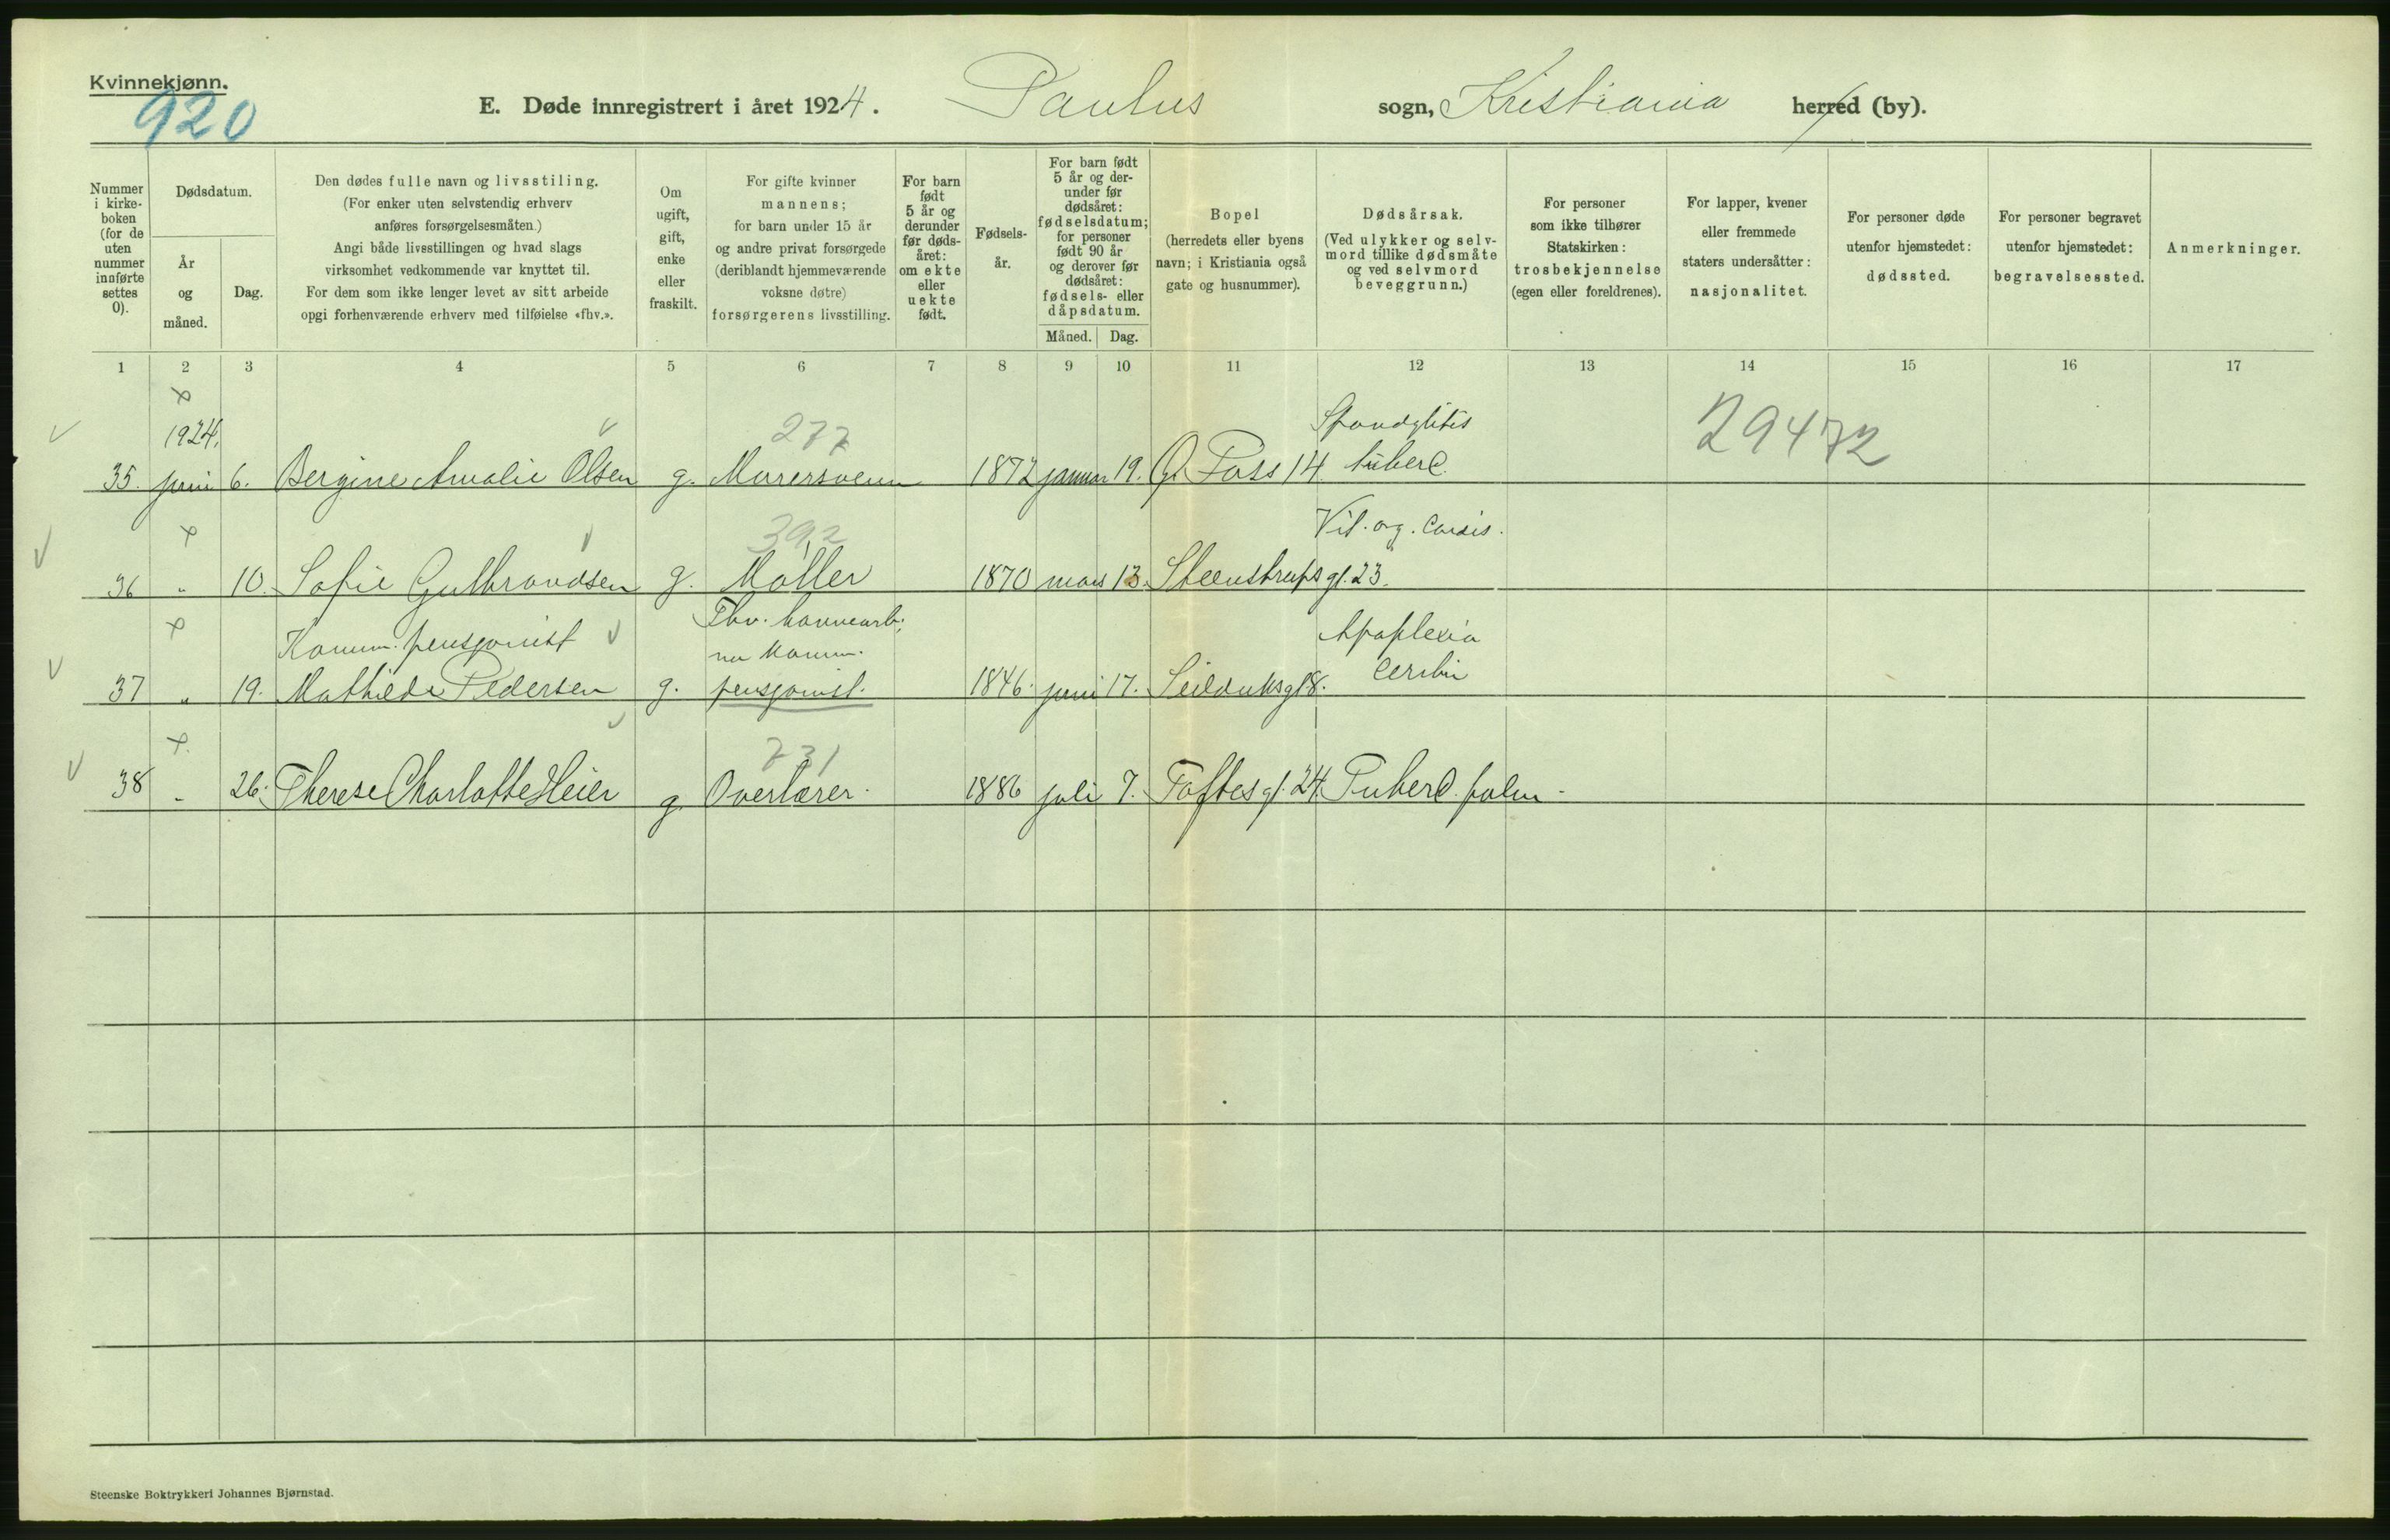 Kvinnekjønn.
920
E. Døde innregistrert i året 1924. Paulus sogn, Kristiania herred (by).
Nummer i kirke-boken (for de uten nummer innførte settes 0).
Dødsdatum.
År og måned.
Dag.
Den dødes fulle navn og livsstiling.
(For enker uten selvstendig erhverv
anføres forsørgelsesmåten.)
Angi både livsstillingen og hvad slags
virksomhet vedkommende var knyttet til.
For dem som ikke lenger levet av sitt arbeide
opgi forhenværende erhverv med tilføielse «fhv.».
Om ugift, gift, enke eller fraskilt.
For gifte kvinner
mannens;
for barn under 15 år
og andre privat forsørgede
(deriblandt hjemmeværende
voksne døtre)
forsørgerens livsstilling.
For barn født 5 år og derunder før døds-året: om ekte eller uekte født.
Fødsels-år.
For barn født
5 år og der-
under før
dødsåret:
fødselsdatum;
for personer
født 90 år
og derover før
dødsåret:
fødsels- eller
dåpsdatum.
Måned.
Dag.
Bopel
(herredets eller byens
navn; i Kristiania også
gate og husnummer).
Dødsårsak.
(Ved ulykker og selv-
mord tillike dødsmåte
og ved selvmord
beveggrunn.)
For personer
som ikke tilhører
Statskirken:
trosbekjennelse
(egen eller foreldrenes).
For lapper, kvener
eller fremmede
staters undersåtter:
nasjonalitet.
For personer døde
utenfor hjemstedet:
dødssted.
For personer begravet
utenfor hjemstedet:
begravelsessted.
Anmerkninger.
1 2 3 4 5 6 7 8 9 10 11 12 13 14 15 16 17
1924. 277 Spondylitis 29472
35. juni 6. Bergine Amalie Olsen g. Murersvenn 1872 januar 19. Gl. Foss 14 tuberc.
392 Vit. org. cordis.
36 " 10. Sofie Gulbrandsen g. Møller 1870 mars 13. Steenstrups gt. 23.
Komm. pensjonist Fhv. havnearb; nu komm. Apoplexia
37 " 19. Mathilde Pedersen g. pensjonist. 1846. juni 17. Seilduksgt 8. cerebri
231
38 " 26. Therese Charlotte Heier g. Overlærer. 1886 juli 7. Toftes gt. 24. Tuberc. pulm.
Steenske Boktrykkeri Johannes Bjørnstad.